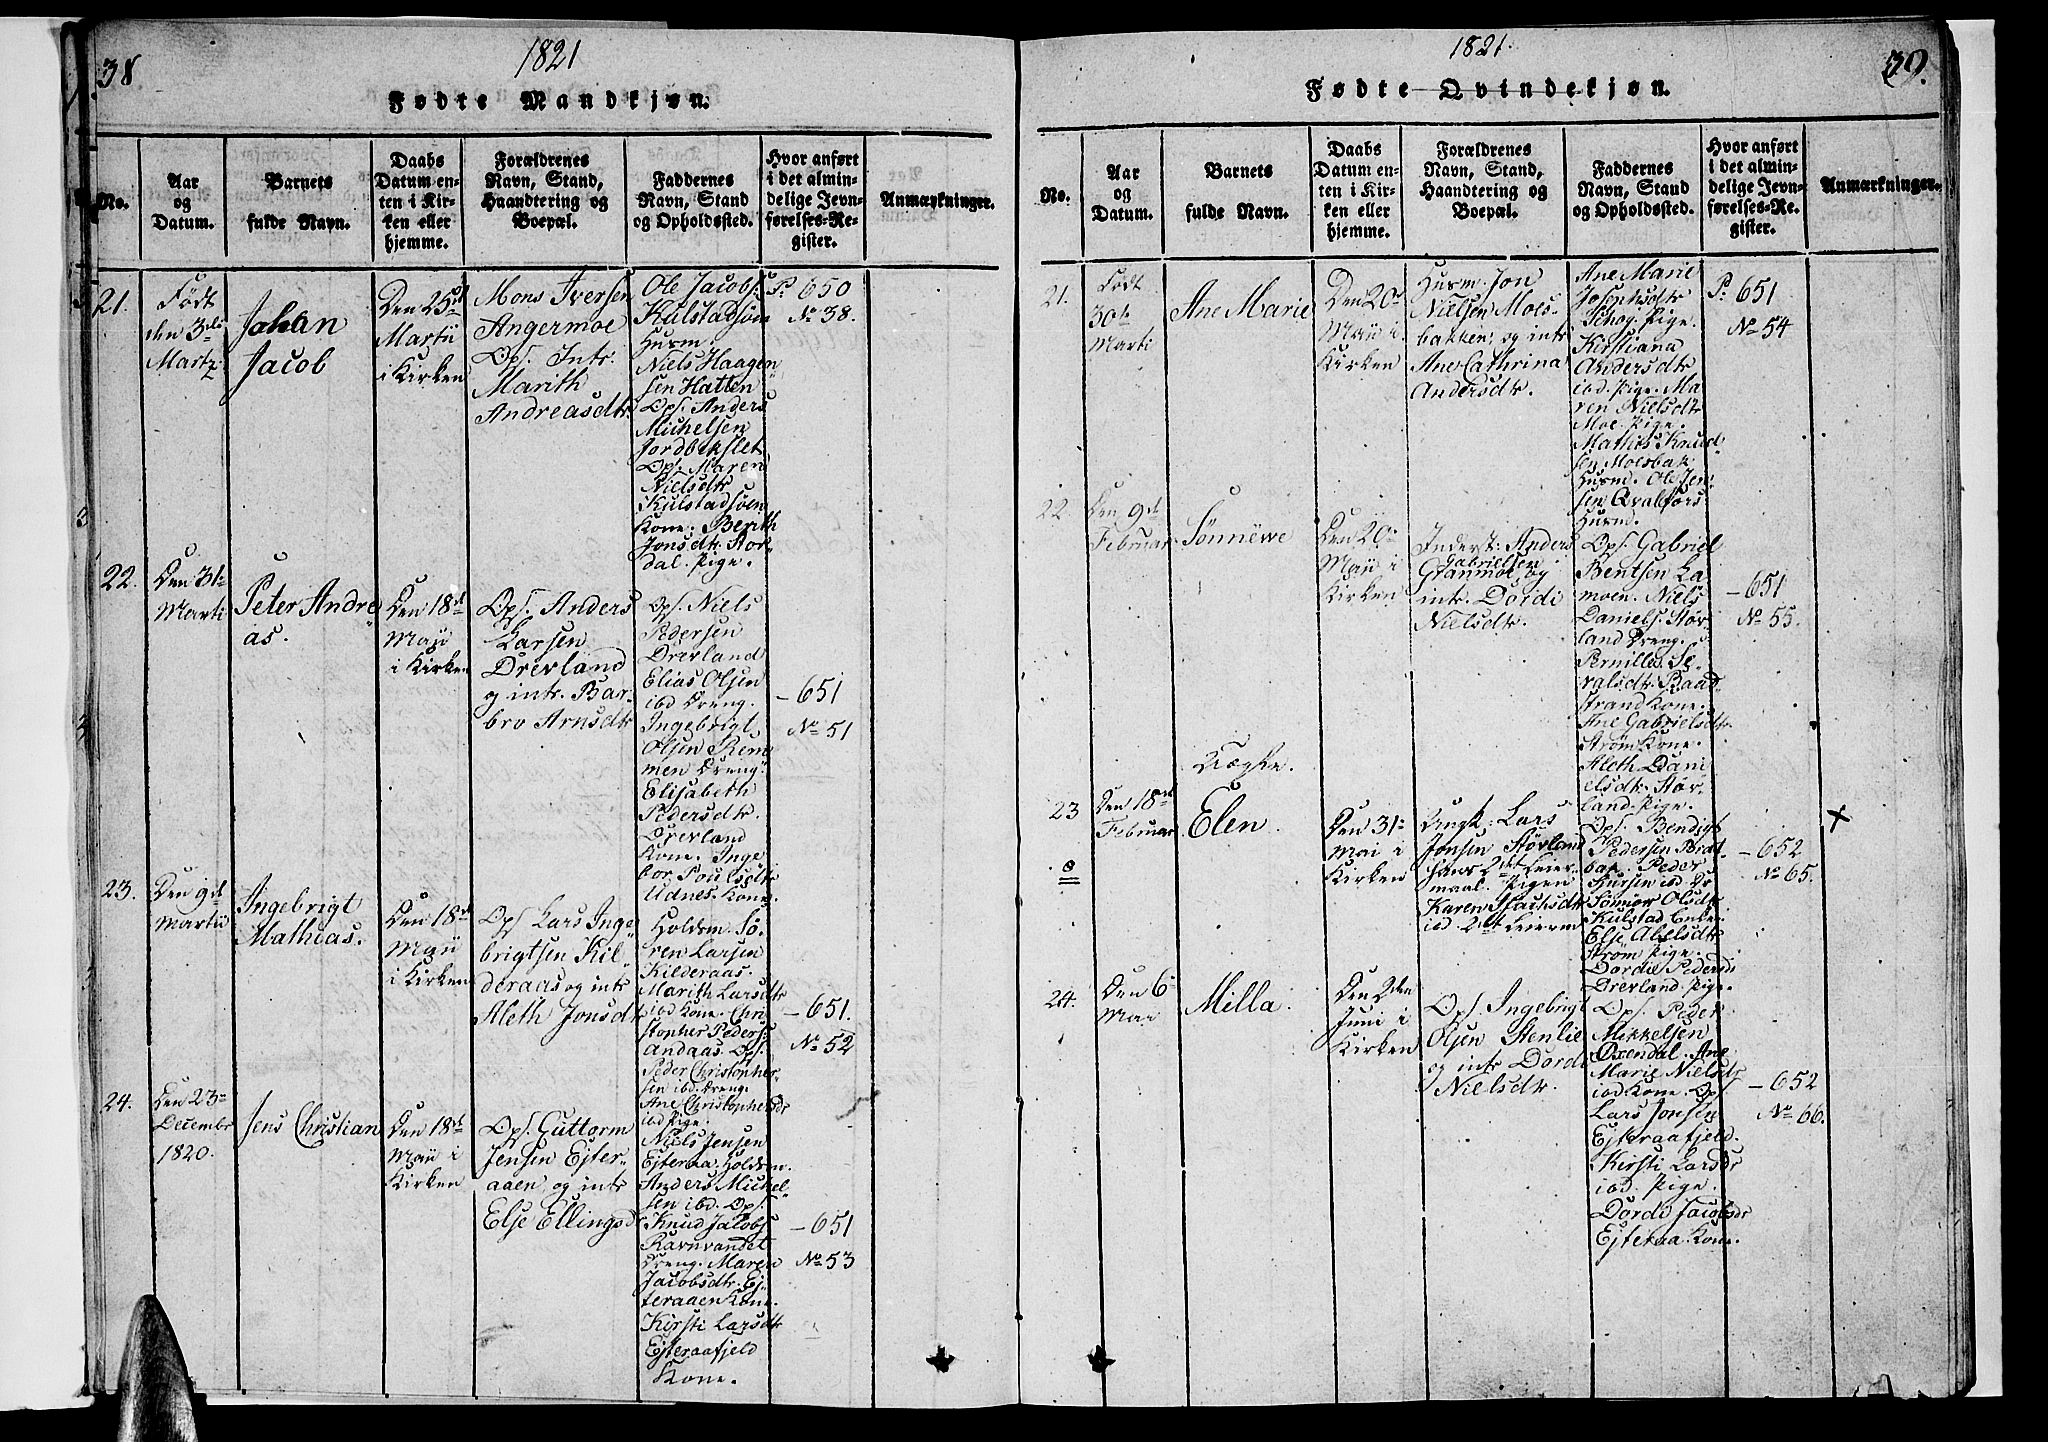 38
1821
Fødte Mandkjøn.
No.
Aar
og
Datum.
Barnets
fulde Navn.
Daabs
Datum en-
ten i Kir-
ken eller
hjemme.
Forældrenes
Navn, Stand,
Haandtering og
Boepæl.
Faddernes
Navn, Stand
og Opholdssted.
Hvor anført
i det almin-
delige Jevn-
førelses-Re-
gister.
Anmærkninger.
21.
Født
den 3de
Martz
Johan
Jacob
Den 25de
Martii
i Kirken
Mons Iversen
Angermoe
Ops. Intr.
Marith
Andreasdtr
Ole Jacobs.
Kulstadsöen
Husm.
Niels Haagen
sen Hatten
Ops. Anders
Michelsen
Jordbekslet
Ops. Maren
Nielsdtr
Kulstadsöen
Kone. Berith
Jonsdtr. Stor-
dal. Pige.
P. 650
No 38.
22.
Den 31te
Marti
Peter Andre
as.
Den 18de
Maji
i Kirken
Ops. Anders
Larsen
Drevland
og intr. Bar-
bro Arnsdtr
Ops. Niels
Pedersen
Drevland
Elias Olsen
ibd Dreng.
Ingebrigt
Olsen Rem
men Dreng.
Elisabeth
Pedersdtr.
Drevland
Kone. Inge
bor Poulsdtr
Udnes. Kone
- 651
No 51
23.
Den 9de
Martii
Ingebrigt
Mathias.
Den 18de
Maji
i Kirken
Ops Lars Inge
brigtsen Kil-
deraas og intr
Aleth Jonsdtr
Holdsm. Sö-
ren Larsen
Kilderaas.
Marith Larsdtr
ibd Kone. Chri-
stopher Peders:
Andaas. Ops.
Peder Christopher-
sen ibd. Dreng.
Ane Christophersdr
ibd Pige.
- 651.
No 52
24.
Den 23de
Decembr
1820.
Jens Christian
Den 18de
Maji i
Kirken
Ops. Guttorm
Jensen Efter-
aaen, og intr
Else Ellingsd
Niels Jensen
Efteraa. Holdsm.
Anders Michel-
sen ibd. Ops.
Knud Jacobs
Ravnvandet
Dreng. Maren
Jacobsdtr. Ef
teraaen Kone.
Kirsti Larsdtr
Efteraafjeld
Kone.
- 651
No 53
39.
1821.
Fødte Qvindekjøn.
No.
Aar
og
Datum.
Barnets
fulde Navn.
Daabs
Datum en-
ten i Kir-
ken eller
hjemme.
Forældrenes
Navn, Stand,
Haandtering og
Boepæl.
Faddernes
Navn, Stand
og Opholdssted.
Hvor anført
i det almin-
delige Jevn-
førelses-Re-
gister.
Anmærkninger.
21.
Födt
30te
Marti
Ane Marie
Den 20de
Maji i
Kirken
Husm. Jon
Nielsen Moes-
bakken; og intr
Ane Cathrina
Andersdtr.
Ane Marie
Josephsdtr
Skog. Pige.
Kirstiana
Andersdtr
ibd. Pige. Ma
ren Nielsdtr
Moe. Pige.
Mathis Knud
sen Moesbak
Husm. Ole Jen
sen Qvalfors
Husm.
P. 651
No 54
22.
Den 9de
Februar
Sönnewe
Den 20de
Maji i
Kirken
Inderst: Anders
Gabrielsen
Granmoe, og
intr. Dordi
Nielsdtr.
Ops. Gabriel
Bentsen La
moen. Niels
Daniels. Stör
land Dreng.
Pernilla Si-
valsdtr. Baad-
strand Kone.
Ane Gabrielsdtr
Ström Kone.
Aleth Dani
elsdtr. Stör-
land. Pige.
- 651
No 55.
23
Den 18de
Februar
Uægte.
Elen.
Den 31te
Mai i
Kirken
Ungk: Lars
Jonsen Störland
hans 2det Leier
maal. Pigen
Karen Isachsdtr
ibd 2det Leierm
Ops. Bendigt
Pedersen Brat-
bak. Peder
Sönnov Olsdtr
Kulstad Enke.
Else Abelsdtr
Ström Pige.
Dordi Pedersdr
Drevland. Pige.
- 652
No 65.
x
24.
Den 6te
Mai
Milla.
Den 2den
Juni i
Kirken
Ops. Ingebrigt
Olsen Stenlie
og intr Dordi
Nielsdtr.
Ops. Peder
Mikkelsen
Oxendal. Ane
Marie Nielsdr
ibd Kone. Ops
Lars Jonsen
Efteraafjeld.
Kirsti Larsdr
ibd. Pige.
Dordi Jacobsdr
Efteraa. Kone.
- 652
No 66.